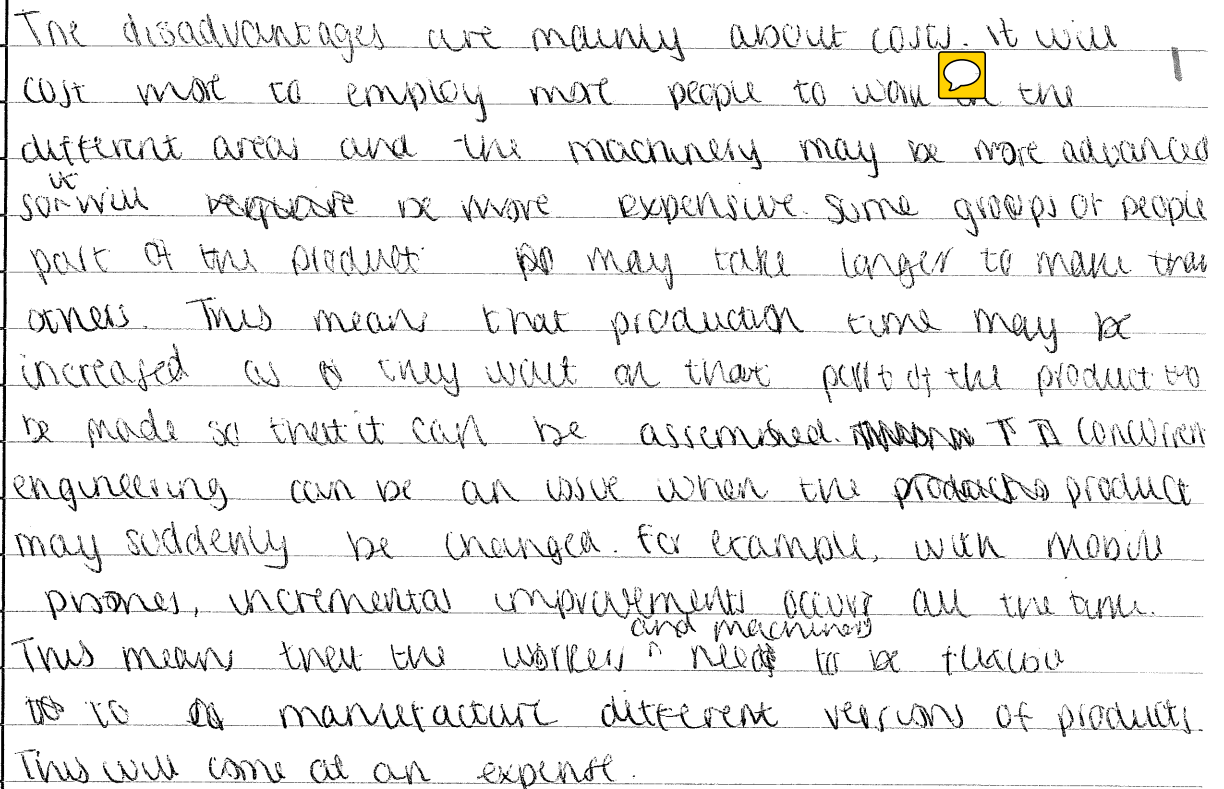 The disadvantages are mainly about costs. It will
cost more to employ more people to work in the
different areas and the machinery may be more advanced
so it will require be more expensive. Some groups of people
part of the product may take longer to make than
others. This means that production time may be
increased as they wait on that part of the product to
be made so that it can be assembled. Concurrent
engineering can be an issue when the products product
may suddenly be changed. For example, with mobile
phones, incremental improvements occurs all the time.
and machinery
This means that the workers ^ needs to be flexible
to manufacture different versions of products.
This will come at an expense.